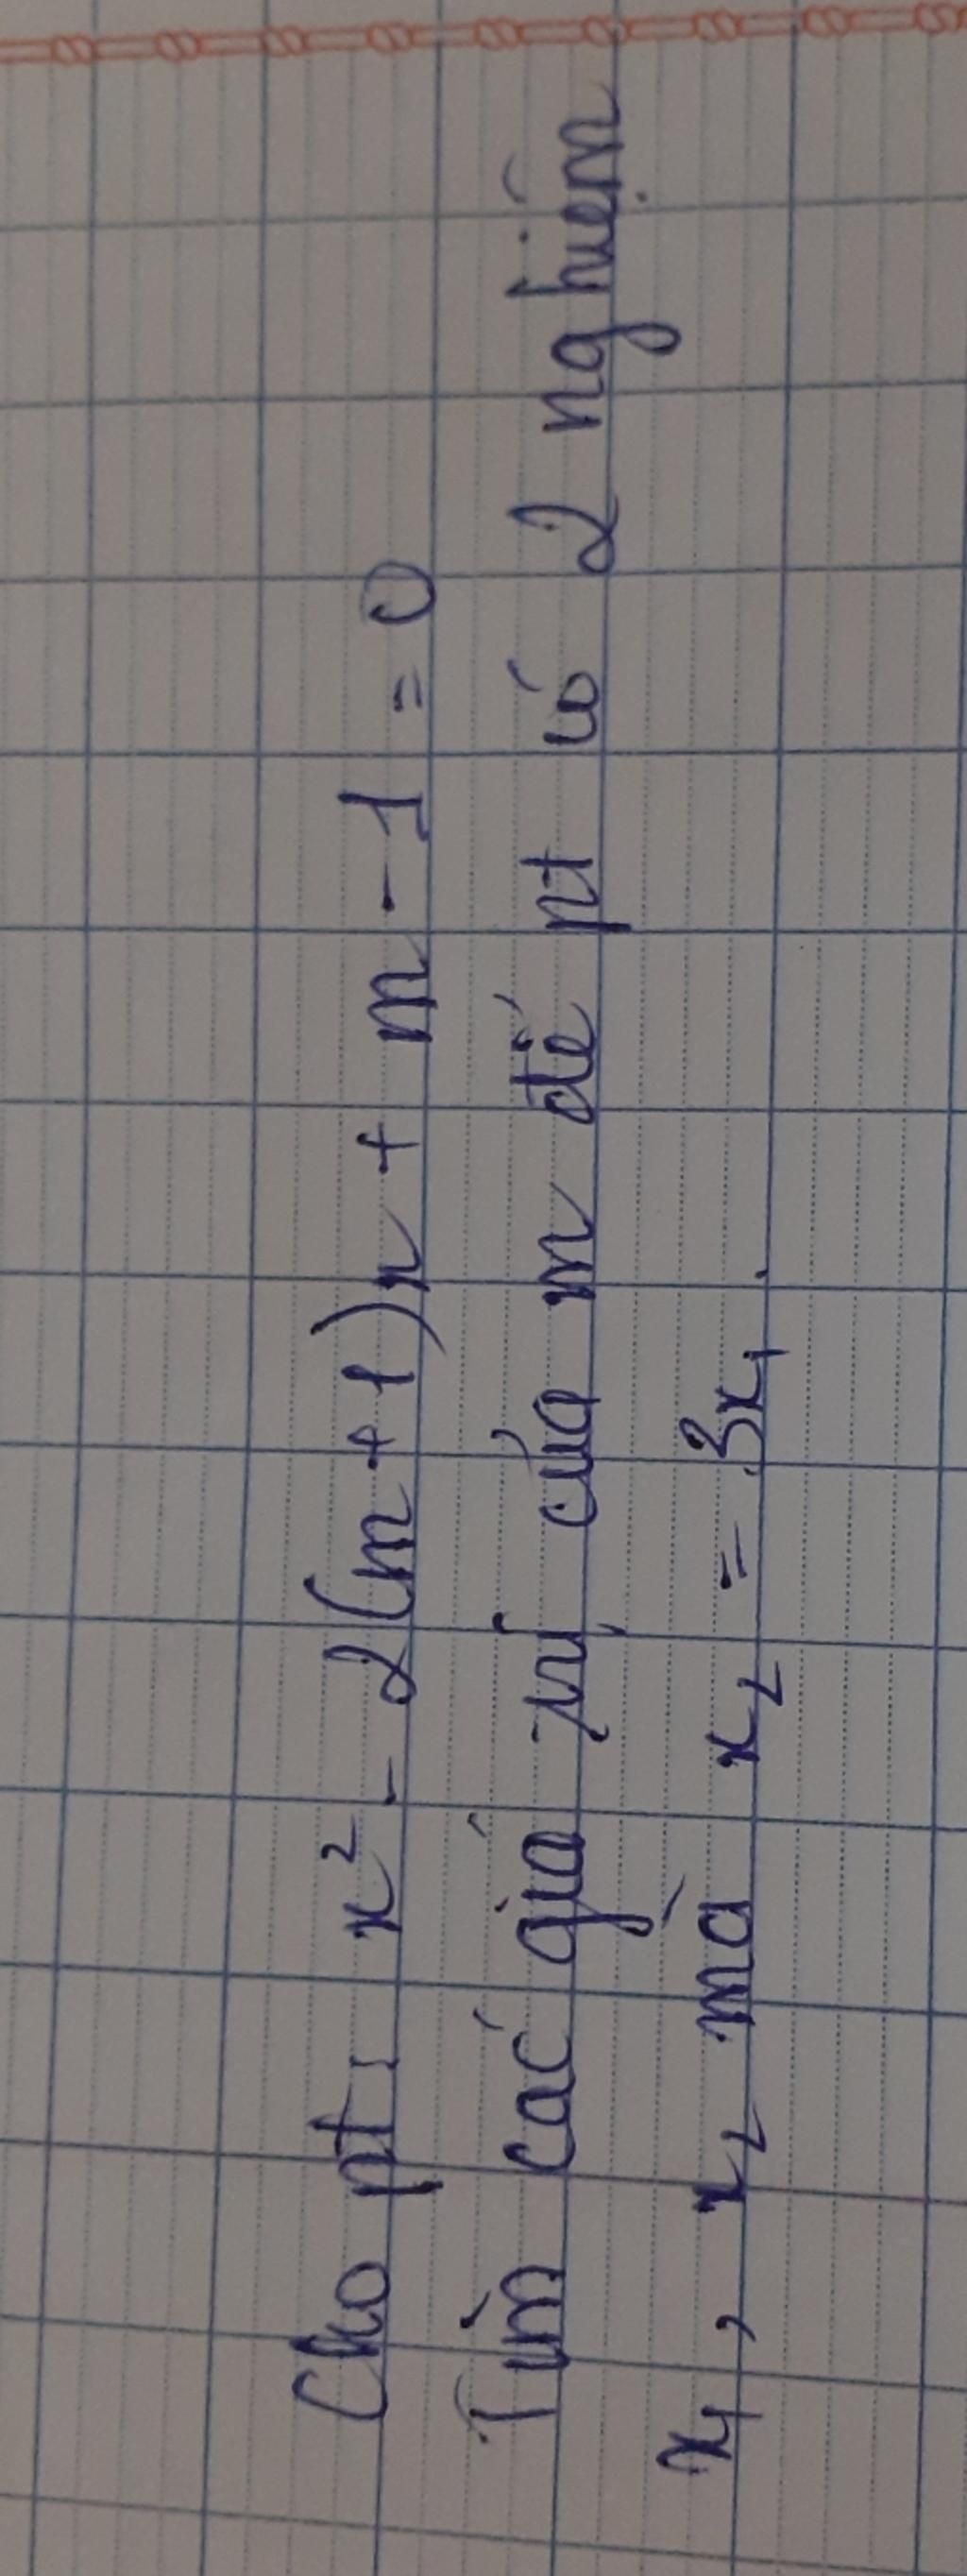 Cho pt: x² - 2(m+1)x + m - 1 = 0
Tìm các giá trị của m để pt có 2 nghiệm
x₁, x₂ mà x₂ = 3x₁.